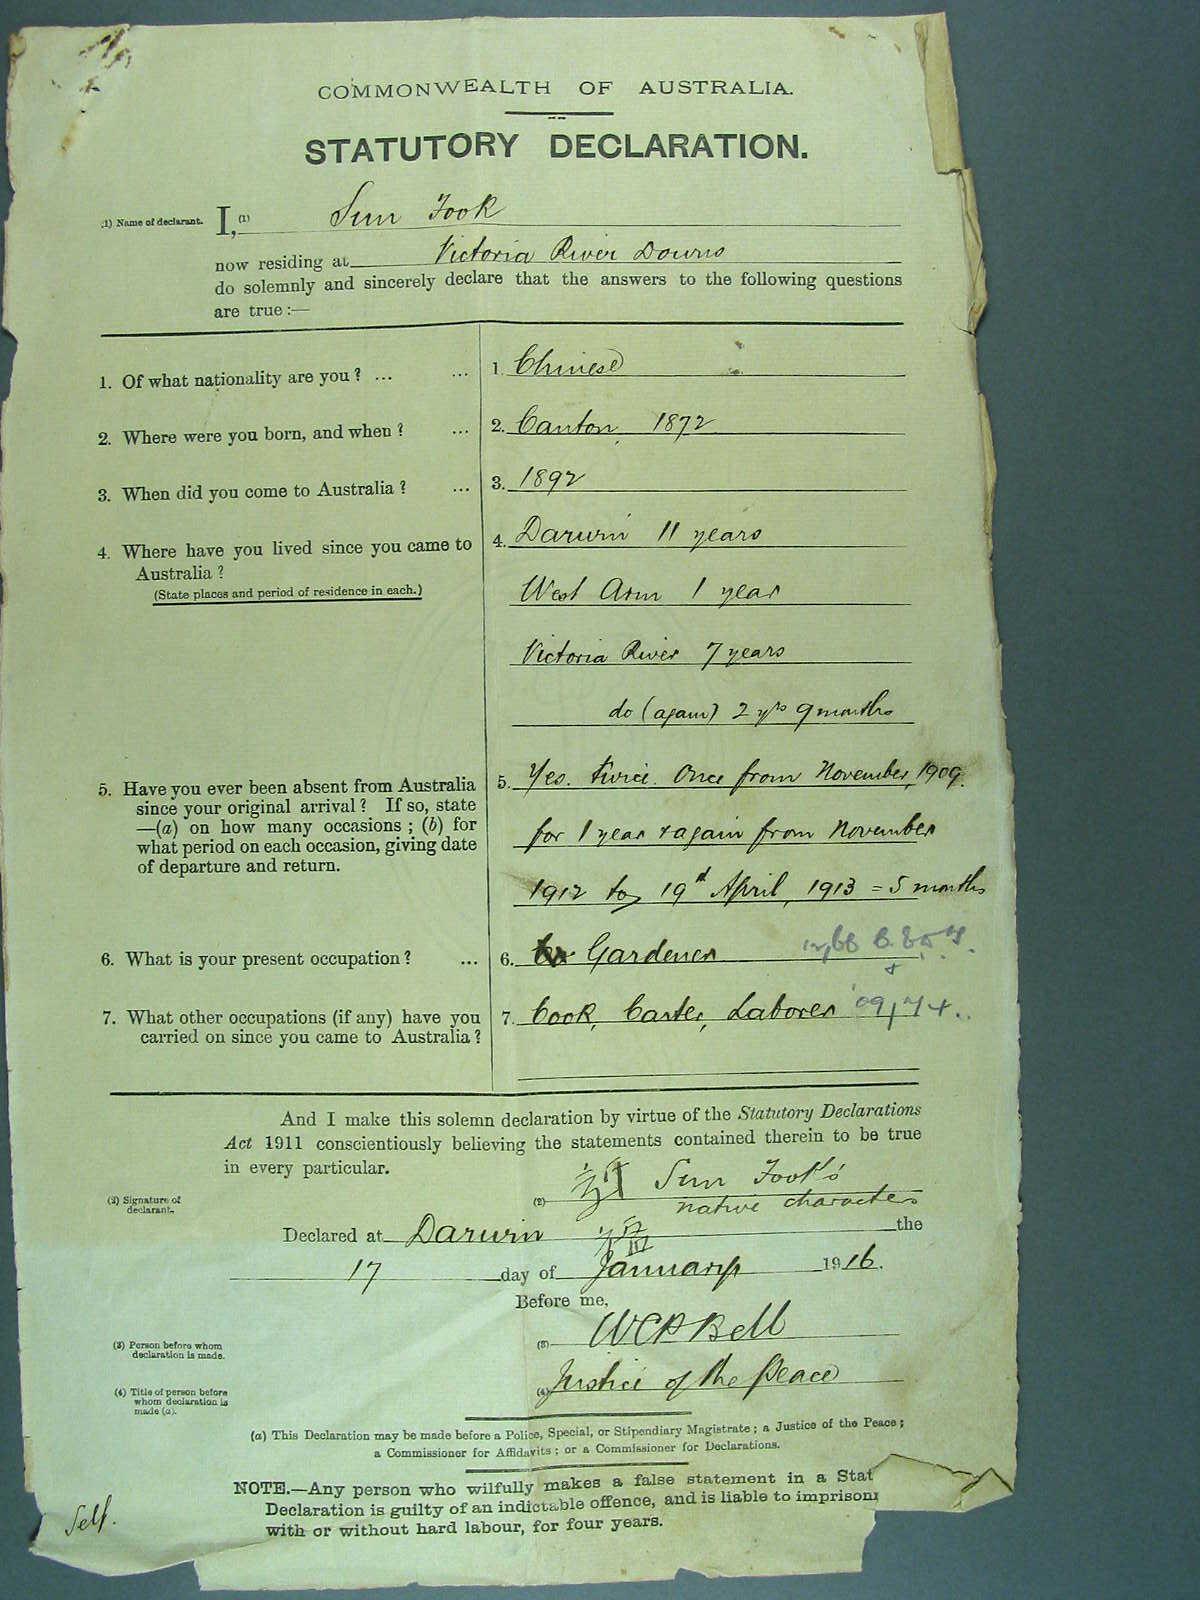 COMMONWEALTH OF AUSTRALIA.
STATUTORY DECLARATION.
(1) Name of declarant. I, (1) Sun Fook
now residing at Victoria River Downs
do solemnly and sincerely declare that the answers to the following questions
are true :—
1. Of what nationality are you ? ... ... 1. Chinese
2. Where were you born, and when ? ... 2. Canton, 1872
3. When did you come to Australia ? ... 3. 1892
4. Where have you lived since you came to 4. Darwin 11 years
Australia ?
(State places and period of residence in each.)
West Arm 1 year
Victoria River 7 years
do (again) 2 yrs 9 months
5. Have you ever been absent from Australia 5. Yes. twice. Once from November, 1909.
since your original arrival ? If so, state
—(a) on how many occasions ; (b) for for 1 year & again from November
what period on each occasion, giving date
of departure and return. 1912 to 19th April, 1913 = 5 months
6. What is your present occupation ? ... 6. Gardener
7. What other occupations (if any) have you 7. Cook, Carter, Laborer
carried on since you came to Australia ?
And I make this solemn declaration by virtue of the Statutory Declarations
Act 1911 conscientiously believing the statements contained therein to be true
in every particular.
(2) Signature of (2) Sun Fook's
declarant. native characters
Declared at Darwin the
17 day of January 1916.
Before me,
(3) Person before whom (3) WCP Bell
declaration is made.
(4) Title of person before (4) Justice of the Peace
whom declaration is
made (a).
(a) This Declaration may be made before a Police, Special, or Stipendiary Magistrate ; a Justice of the Peace ;
a Commissioner for Affidavits ; or a Commissioner for Declarations.
NOTE.—Any person who wilfully makes a false statement in a Stat
Declaration is guilty of an indictable offence, and is liable to imprison
with or without hard labour, for four years.
Self.